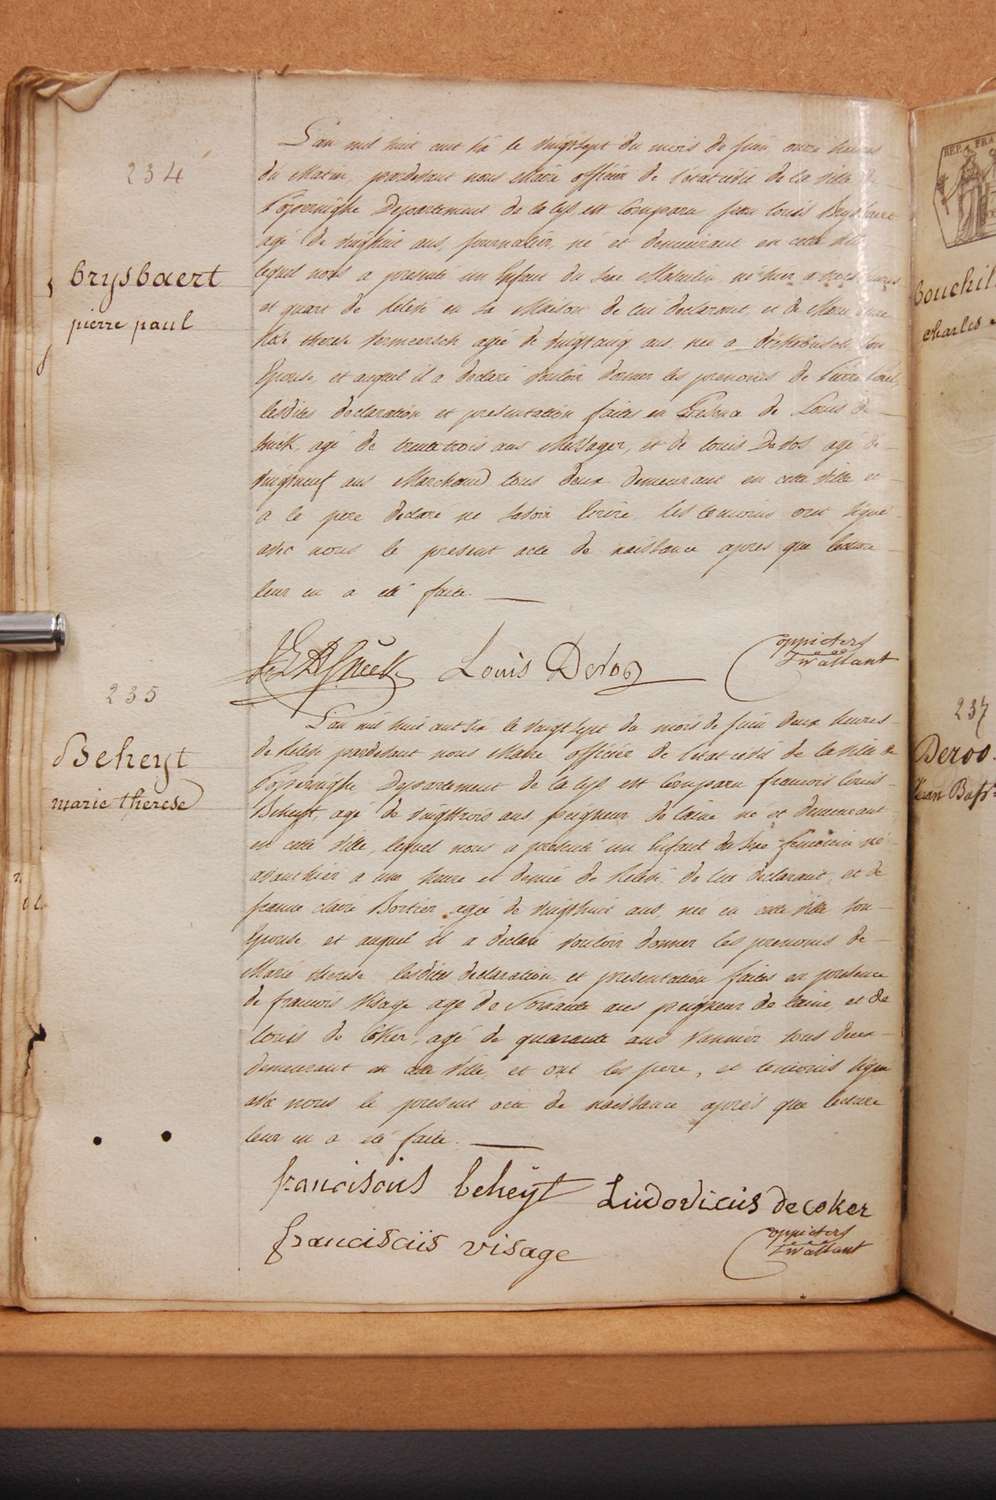 234
brysbaert
pierre paul
L'an mil huit cent dix le vingtsept du mois de juin onze heures
du Matin, pardevant nous Maire officier de l'état civil de la ville de
Poperinghe Departement de la lys est Comparu jean louis Brysbaert
agé de vinghuit ans, journalier, né et demeurant en cette ville
lequel nous a presenté un Enfant du sexe Masculin, né hier a
et quart de relevé en sa Maison de lui declarant, et de Marie
therese Vermeersch agée de vingtcinq ans née a son
Epouse, et auquel il a declaré vouloir donner les prenoms de Pierre Paul,
lesdites declaration et presentation faites en Presence de Louis de
agé de trentetrois ans Messager, et de louis Deroo agé de
vingtneuf ans Marchand tous deux demeurant en cette ville et
a le pere declaré ne savoir Ecrire, les temoins ont signé
avec nous le present acte de naissance apres que lecture
leur en a été faite.
Louis Deroo
235
Beheyt
marie therese
L'an mil huit cent dix le vingtsept du mois de juin deux heures
de relevé pardevant nous Maire officier de l'état civil de la ville de
Poperinghe Departement de la lys est Comparu francois louis
Beheyt, agé de vingttrois ans, peigneur de laine né et demeurant
en cette ville, lequel nous a presenté un Enfant du sexe feminin né
avanthier a une heure et demie de relevé, de lui declarant, et de
jeanne claire Bortier agée de vinghuit ans, née en cette ville son
Epouse, et auquel il a declaré vouloir donner les prenoms de
Marie therese lesdites declaration et presentation faites en presence
de francois Visage agé de Soixante ans peigneur de laine, et de
louis de Coker, agé de quarante ans Vannier tous deux
demeurant en cette ville, et ont les pere, et temoins signé
avec nous le present acte de naissance aprés que lecture
leur en a été faite.
franciscus beheyt
Ludovicus decoker
franciscus visage
Bouchil
charles
237
Deroo
jean Bapt